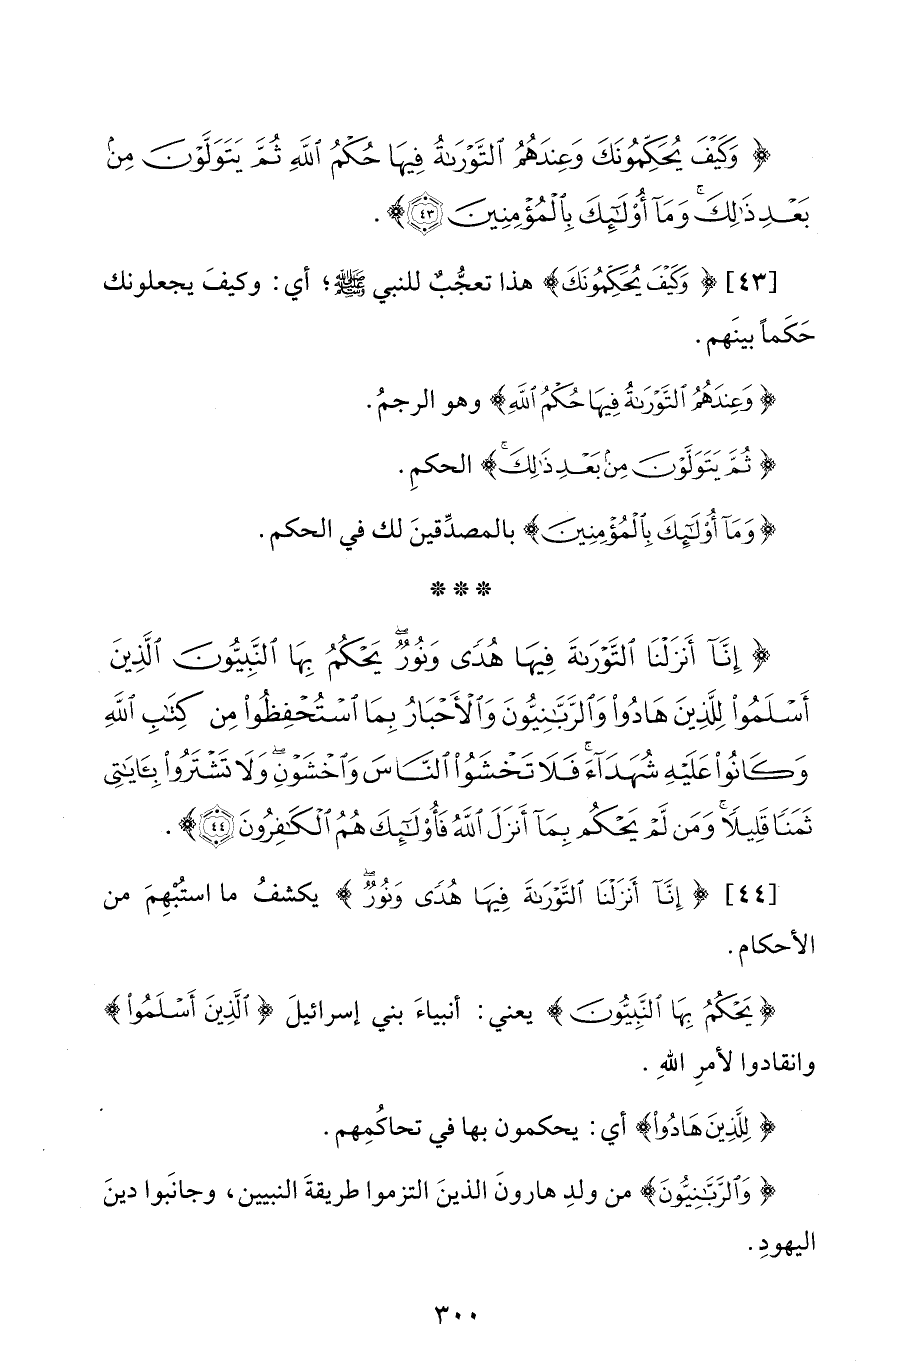 ﴿ وَكَيْفَ يُحَكِّمُونَكَ وَعِندَهُمُ ٱلتَّوْرَىٰةُ فِيهَا حُكْمُ ٱللَّهِ ثُمَّ يَتَوَلَّوْنَ مِنۢ
بَعْدِ ذَٰلِكَ ۚ وَمَآ أُو۟لَـٰٓئِكَ بِٱلْمُؤْمِنِينَ ٤٣﴾ .
[٤٣] ﴿ وَكَيْفَ يُحَكِّمُونَكَ﴾ هذا تعجُّبٌ للنبي ﷺ؛ أي: وكيفَ يجعلونك
حَكَماً بينَهم .
﴿ وَعِندَهُمُ ٱلتَّوْرَىٰةُ فِيهَا حُكْمُ ٱللَّهِ﴾ وهو الرجمُ.
﴿ ثُمَّ يَتَوَلَّوْنَ مِنۢ بَعْدِ ذَٰلِكَ ۚ ﴾ الحكمِ .
﴿ وَمَآ أُو۟لَـٰٓئِكَ بِٱلْمُؤْمِنِينَ ﴾ بالمصدِّقينَ لك في الحكم .
* * *
﴿ إِنَّآ أَنزَلْنَا ٱلتَّوْرَىٰةَ فِيهَا هُدًى وَنُورٌ ۚ يَحْكُمُ بِهَا ٱلنَّبِيُّونَ ٱلَّذِينَ
أَسْلَمُوا۟ لِلَّذِينَ هَادُوا۟ وَٱلرَّبَّـٰنِيُّونَ وَٱلْأَحْبَارُ بِمَا ٱسْتُحْفِظُوا۟ مِن كِتَـٰبِ ٱللَّهِ
وَكَانُوا۟ عَلَيْهِ شُهَدَآءَ ۚ فَلَا تَخْشَوُا۟ ٱلنَّاسَ وَٱخْشَوْنِ ۖ وَلَا تَشْتَرُوا۟ بِـَٔايَـٰتِى
ثَمَنًا قَلِيلًا ۚ وَمَن لَّمْ يَحْكُم بِمَآ أَنزَلَ ٱللَّهُ فَأُو۟لَـٰٓئِكَ هُمُ ٱلْكَـٰفِرُونَ ٤٤﴾ .
[٤٤] ﴿ إِنَّآ أَنزَلْنَا ٱلتَّوْرَىٰةَ فِيهَا هُدًى وَنُورٌ ۖ ﴾ يكشفُ ما استُبْهِمَ من
الأحكام .
﴿ يَحْكُمُ بِهَا ٱلنَّبِيُّونَ ﴾ يعني: أنبياءَ بني إسرائيلَ ﴿ ٱلَّذِينَ أَسْلَمُوا۟ ﴾
وانقادوا لأمرِ اللهِ .
﴿ لِلَّذِينَ هَادُوا۟﴾ أي: يحكمون بها في تحاكُمِهم .
﴿ وَٱلرَّبَّـٰنِيُّونَ﴾ من ولدِ هارونَ الذينَ التزموا طريقةَ النبيين، وجانَبوا دينَ
اليهودِ .
٣٠٠